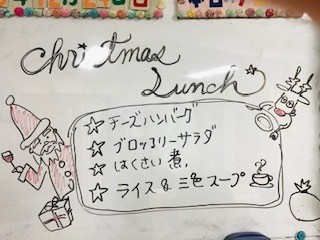 Christmas
Lunch
☆ チーズハンバーグ
☆ ブロッコリーサラダ
☆ はくさい煮。
☆ ライス & 三色スープ